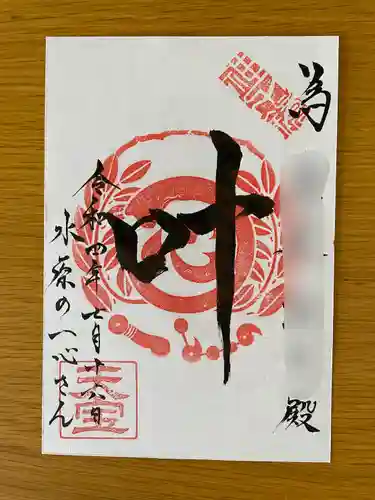 為
殿
叶
令和四年七月十八日
水療の一心さん